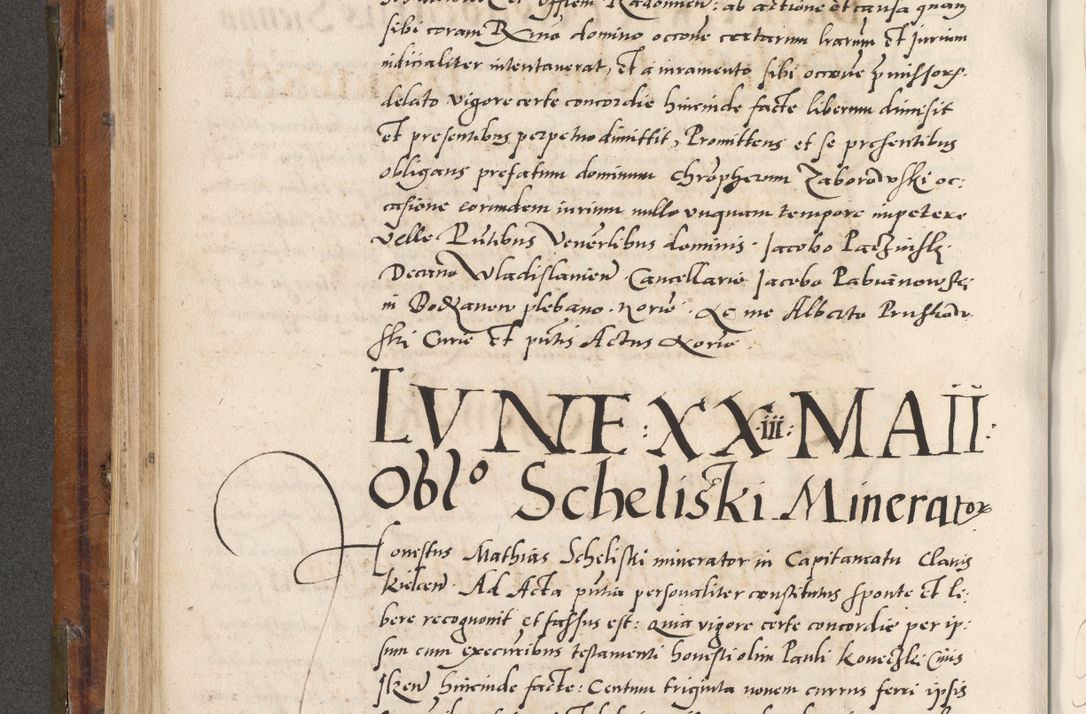 sibi coram R̃mo domino occõne certarum l̃rarum et jurium
indicialiter intentauerat, Et a iuramento sibi occõne p̃missorz
delato vigore certe concordie hincinde facte liberum dimisit
et presentibus perpetuo dimittit, Promittens et se presentibus
obligans prefatum dominum Chr̃opherum Zaborowski oc:
casione eorundem iurium nullo vnquam tempore impetere
velle P̃ntibus Venerlibus dominis Jacobo Paczinsk
Decano Wladislauien̄ Cancellario Jacobo Pabianowski
in Bodzanow plebano . Notriõ . Ac me Alberto Prusinow
ski Curie et p̃ntis Actus Notrio
LVNE : XX iii : MAII :
Oblo Scheliski Minerator
Honestus Mathias Scheliski minerator in Capitaneatu Clauis
Kielcen̄ . Ad Acta p̃ntia personaliter constitutus sponte et li:
bere recognouit et fassus est : Quia vigore certe concordie per ip:
sum cum execut̃ribus testamenti honesti olim Pauli Koweczki Ciuis
Ilzen̄ hincinde facte : Centum triginta nouem currus ferri ipsis